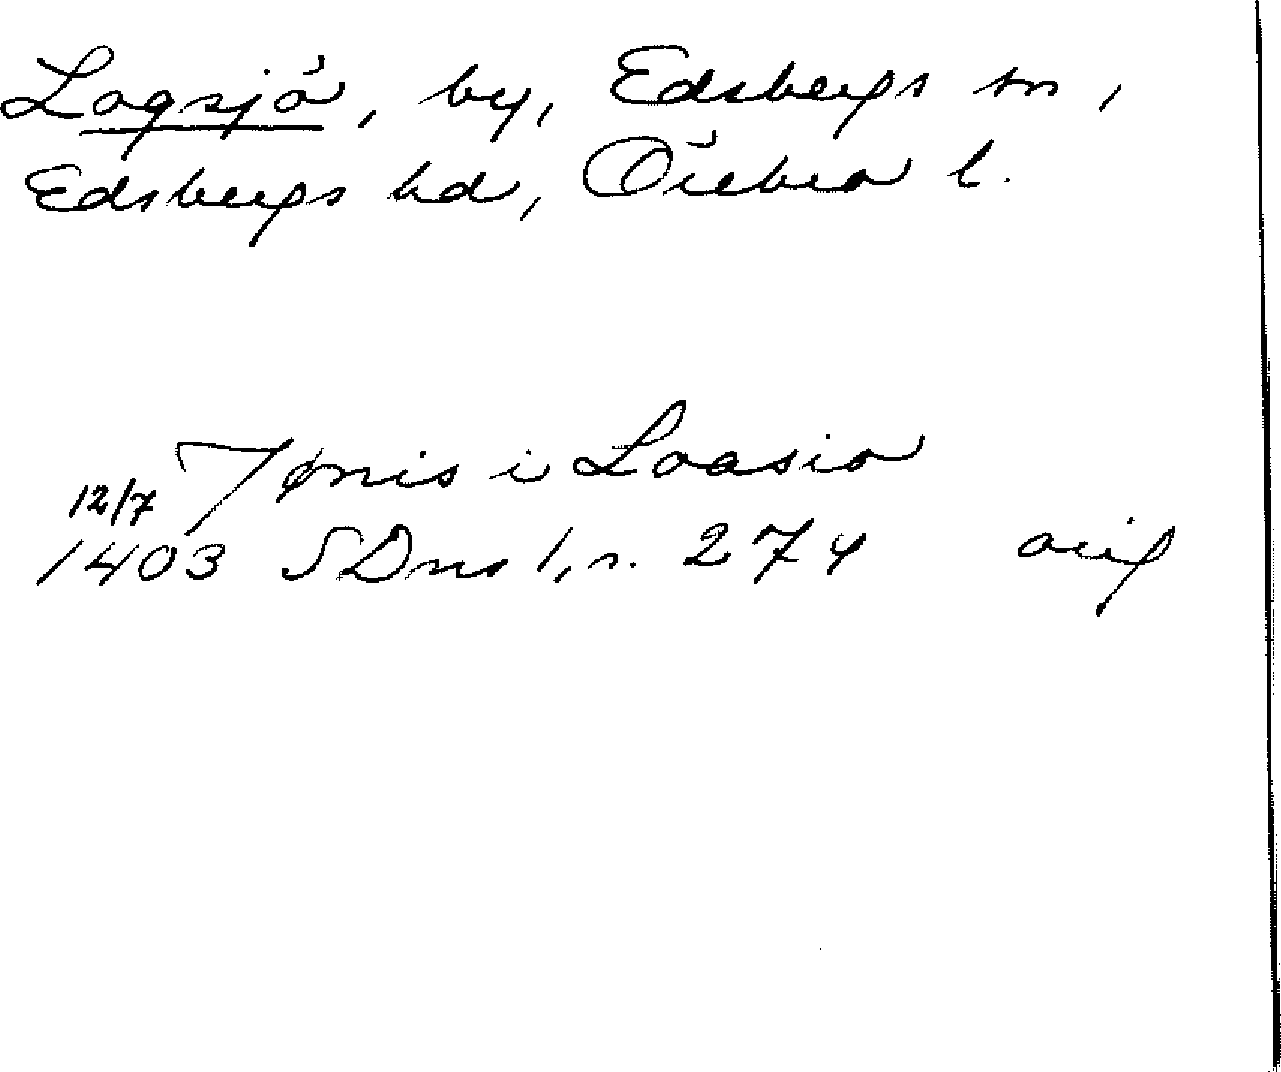 Logsjö, by, Edsbergs sn,
Edsbergs hd, Örebro l.
Tønis i Loasio
12/7
1403 SDns 1, s. 274 orig